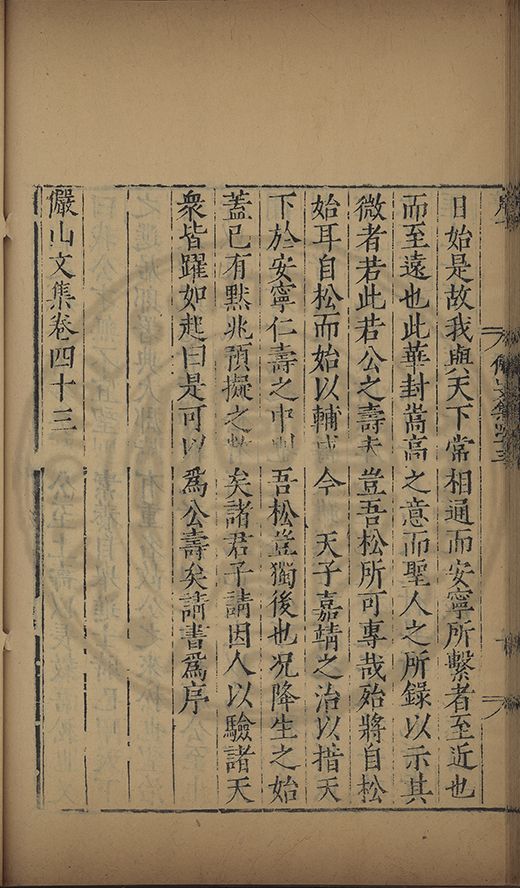 日始是故我與天下常相通而安寧所繫者至近也
而至遠也此華封嵩高之意而聖人之所錄以示其
微者若此若公之壽夫豈吾松所可專哉殆將自松
始耳自松而始以輔成今 天子嘉靖之治以措天
下於安寧仁壽之中則吾松豈獨後也况降生之始
蓋已有默兆預擬之者矣諸君子請因人以驗諸天
衆皆躍如起曰是可以爲公壽矣請書爲序
儼山文集卷四十三